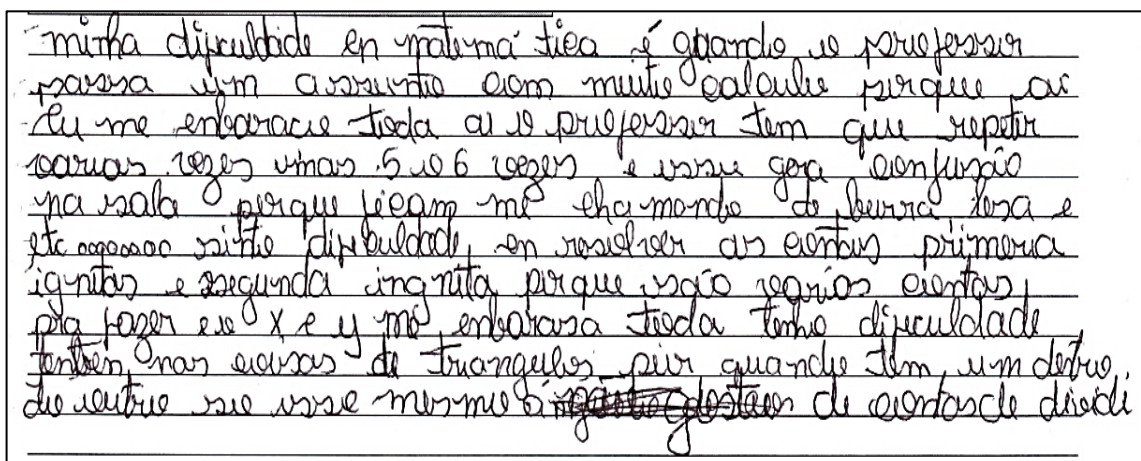 minha dificuldade en matemática é quando o professor
passa um assunto com muito calculo porque ai
Eu me enbaracu toda ai o professor tem que repetir
varias vezes umas 5 o 6 vezes e isso gera confusão
na sala porque ficam me chamando de burra, lesa e
etc sinto dificuldade, en resolver as contas primeria
ignitas e segunda ingnita porque são varios contas,
pra fazer e o x e y me enbarasa toda tenho dificuldade
tenben nas coisas de triangulos pior quando tem um detro,
do outro so isso mesmo á de contas de dividi